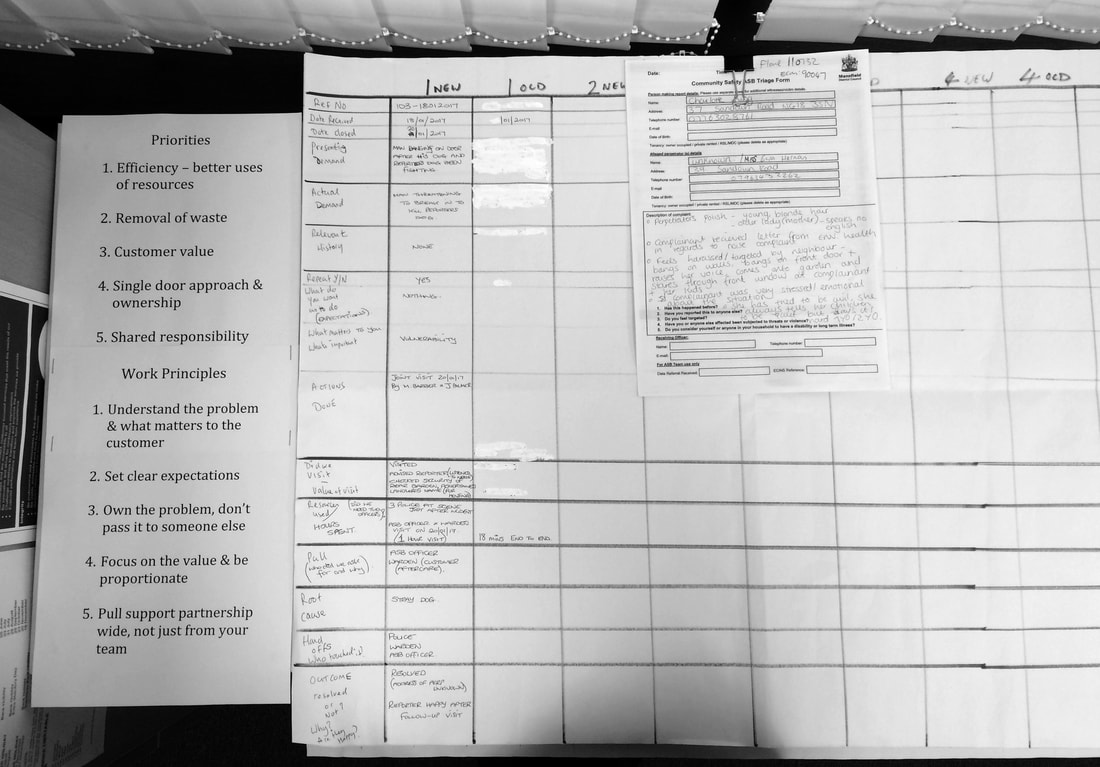 Priorities
1. Efficiency – better uses
of resources
2. Removal of waste
3. Customer value
4. Single door approach &
ownership
5. Shared responsibility
Work Principles
1. Understand the problem
& what matters to the
customer
2. Set clear expectations
3. Own the problem, don't
pass it to someone else
4. Focus on the value & be
proportionate
5. Pull support partnership
wide, not just from your
team
1 NEW
1 OLD
2 NEW
4 NEW
4 OLD
Ref No.
103-18012017
Date Received
18/01/2017
/01/2017
Date closed
/01/2017
Presenting
Demand
MAN BANGING ON DOOR
AFTER HIS DOG AND
REPORTERS DOG BEEN
FIGHTING.
Actual
Demand
MAN THREATENING
TO BREAK IN TO
KILL REPORTERS
DOG
Relevant
History
NONE
Repeat Y/N
YES
What do
you want
us to do
(EXPECTATIONS)
NOTHING.
What matters to you
What's important
VULNERABILITY
ACTIONS
DONE
JOINT VISIT 20/01/17
By M. BARBER &
Visit
Value of visit
VISITED
ADVISED REPORTER
CHECKED SECURITY OF
REAR GARDEN,
LANDLORDS NAME (FOR
Resources
used/
HOURS
SPENT.
3 POLICE AT SCENE
JUST AFTER
ASB OFFICER & WARDEN
VISIT ON 20/01/17.
(1 HOUR VISIT)
18 mins END TO END.
Pull
(who did we ask
for and why)
ASB OFFICER
WARDEN (CUSTOMER
(AFTERCARE).
Root
cause
STRAY DOG.
Hand
offs
Who touched it
POLICE
WARDEN
ASB OFFICER
OUTCOME
resolved
or
Not?
Why?
Are they
Happy?
RESOLVED
(ADDRESS OF PERP
UNKNOWN)
REPORTER HAPPY AFTER
FOLLOW-UP VISIT
Date:
110732
90067
Mansfield
District Council
Community Safety ASB Triage Form
Person making report details:
Name:
Charlotte
Address:
37 Sandown Road NG18
Telephone number
E-mail:
Date of Birth:
Tenancy: owner occupied / private rented / RSL/MDC (please delete as appropriate)
Alleged perpetrator(s) details:
Name:
Unknown
Address:
Sandown Road
Telephone number
E-mail:
Date of Birth:
Tenancy: owner occupied / private rented / RSL/MDC (please delete as appropriate)
Description of complaint
Perpetrators Polish - young, blonde hair
- older lady (mother) - speaks no
english
Complainant recieved letter from env. health
in regards to noise complaint
Feels harassed/targeted by neighbour -
bangs on walls, bangs on front door +
raises her voice, comes onto garden and
stares through front window at complainant
+ her kids
complainant was very stressed/emotional
about the situation
1. Has this happened before?
2. Have you reported this to anyone else?
3. Do you feel targeted?
4. Have you or anyone else affected been subjected to threats or violence?
5. Do you consider yourself or anyone in your household to have a disability or long term illness?
Receiving Officer:
Name:
Telephone number:
E-mail:
For ASB Team use only
Date Referral Received:
ECINS Reference: